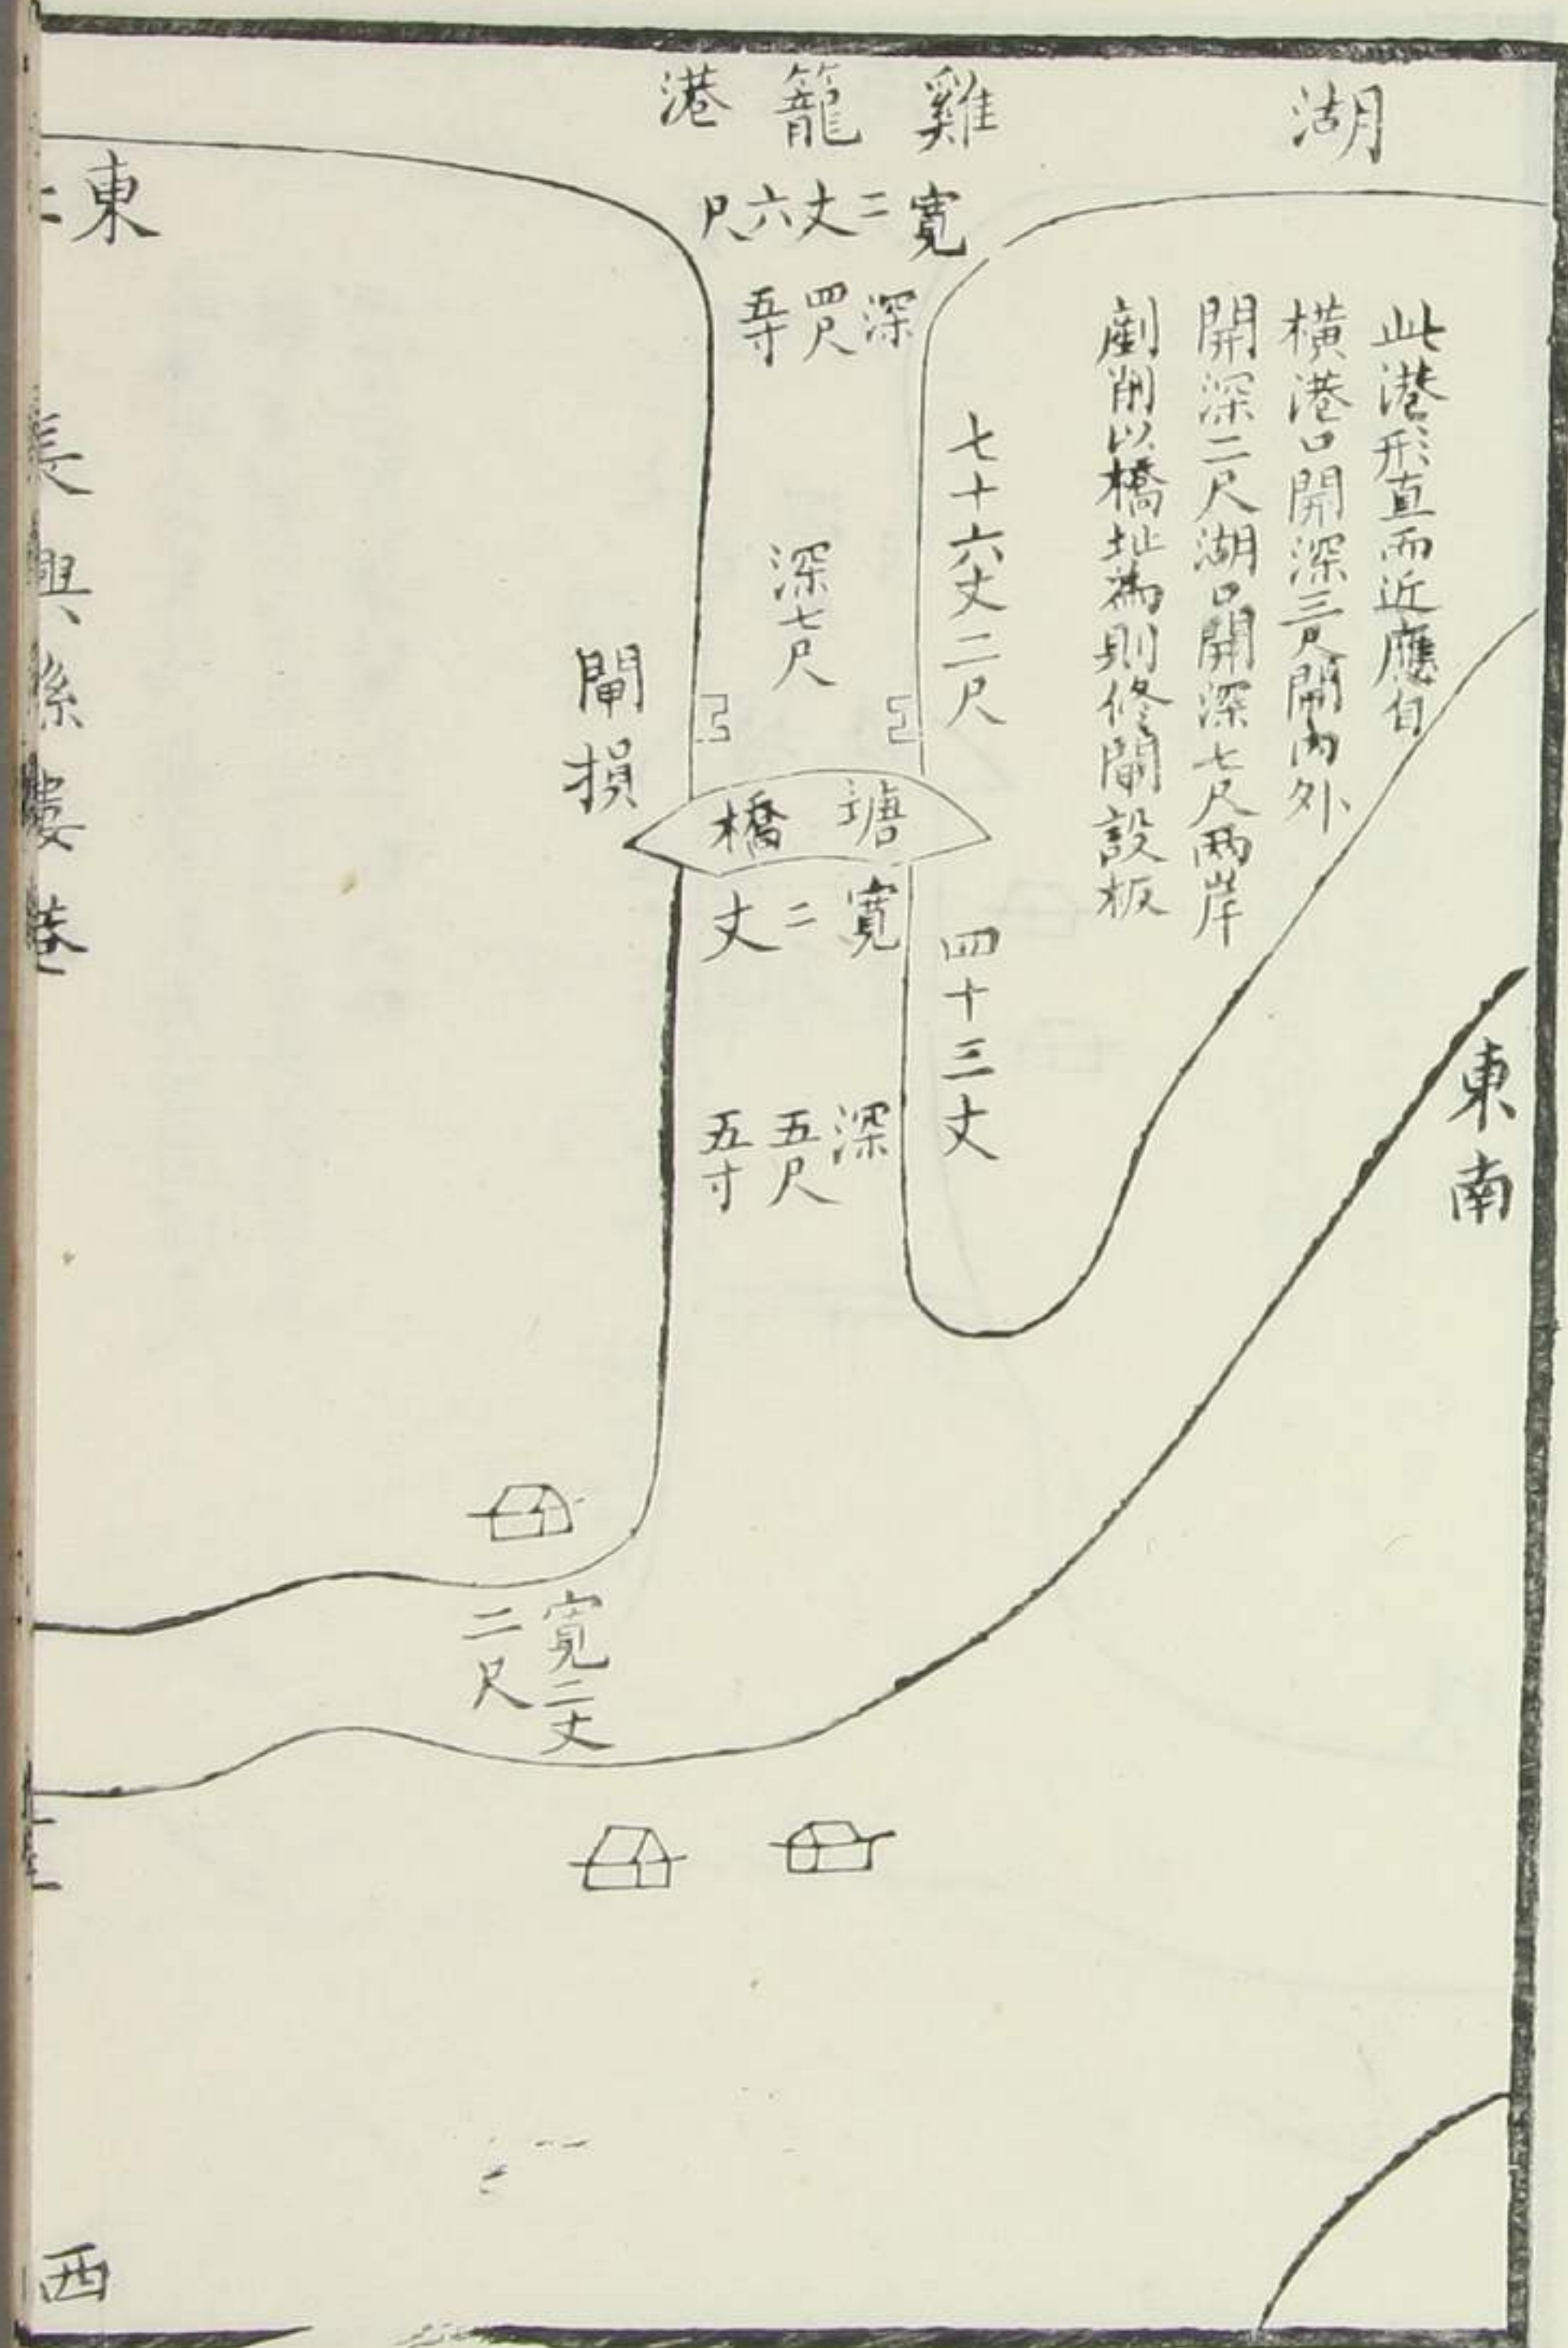 湖
雞籠港
寬二丈六尺
深四尺五寸
此港形直而近應自
橫港口開深三尺閘內外
開深二尺湖口開深七尺兩岸
剷削以橋址為則修閘設板
七十六丈二尺
深七尺
閘損
塘橋
寬二丈
四十三丈
深五尺五寸
東南
寬二丈二尺
東
長興縣婁港
西